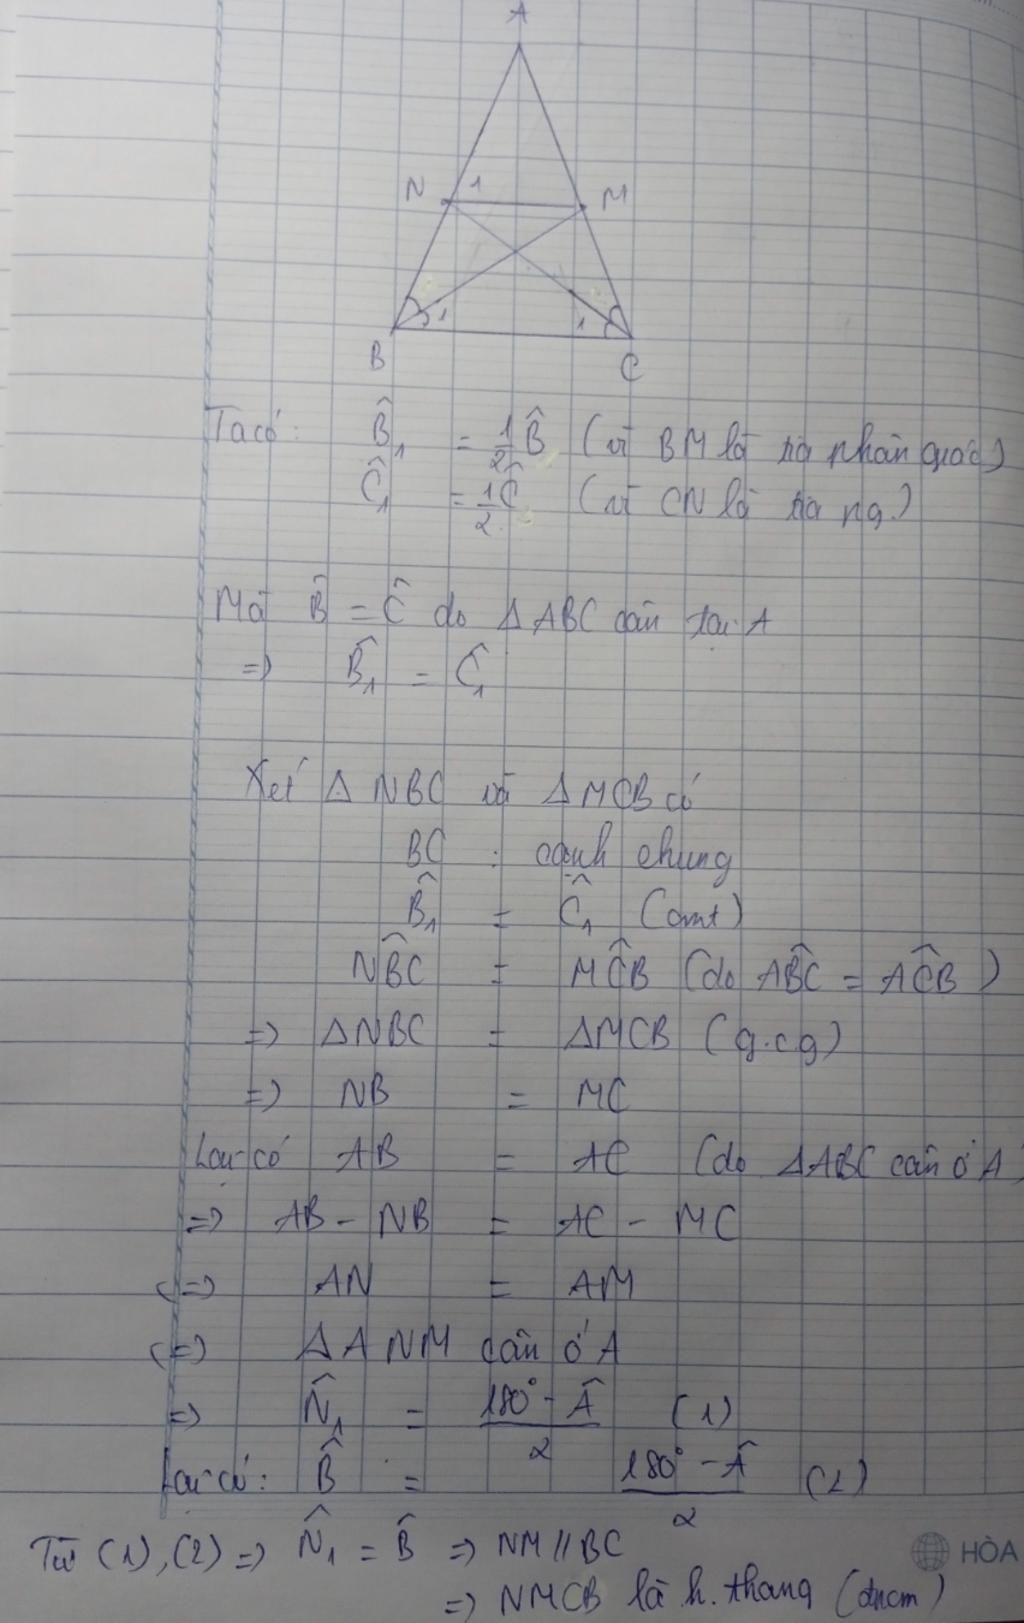 A
N 1 M
1 1
B C
Ta có: B̂₁ = 1/2 B̂ (vì BM là tia phân giác)
Ĉ₁ = 1/2 Ĉ (vì CN là tia pg)
Mà B̂ = Ĉ do ΔABC cân tại A
=> B̂₁ = Ĉ₁
Xét Δ NBC và ΔMCB có
BC : cạnh chung
B̂₁ = Ĉ₁ (cmt)
NB̂C = MĈB (do AB̂C = AĈB)
=> ΔNBC = ΔMCB (g.c.g)
=> NB = MC
Lại có AB = AC (do ΔABC cân ở A)
=> AB - NB = AC - MC
<=> AN = AM
<=> ΔANM cân ở A
=> N̂₁ = (180° - Â)/2 (1)
Lại có: B̂ = (180° - Â)/2 (2)
Từ (1), (2) => N̂₁ = B̂ => NM // BC
=> NMCB là h. thang (đpcm)
HÒA